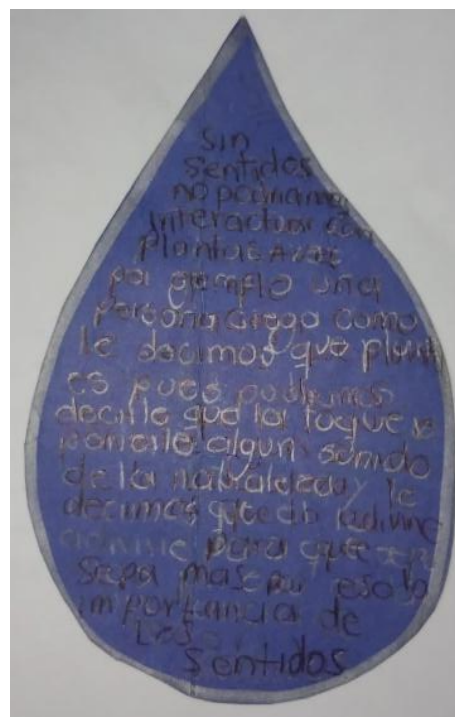 Sin
sentidos
no podriamos
interactuar con
plantas Aves
por ejemplo una
persona ciega como
le decimos que planta
es pues podriamos
decirle que la toque o
ponerle algun sonido
de la naturaleza y le
decimos que adivine
para que
sepa mas por eso la
importancia de
Los
sentidos